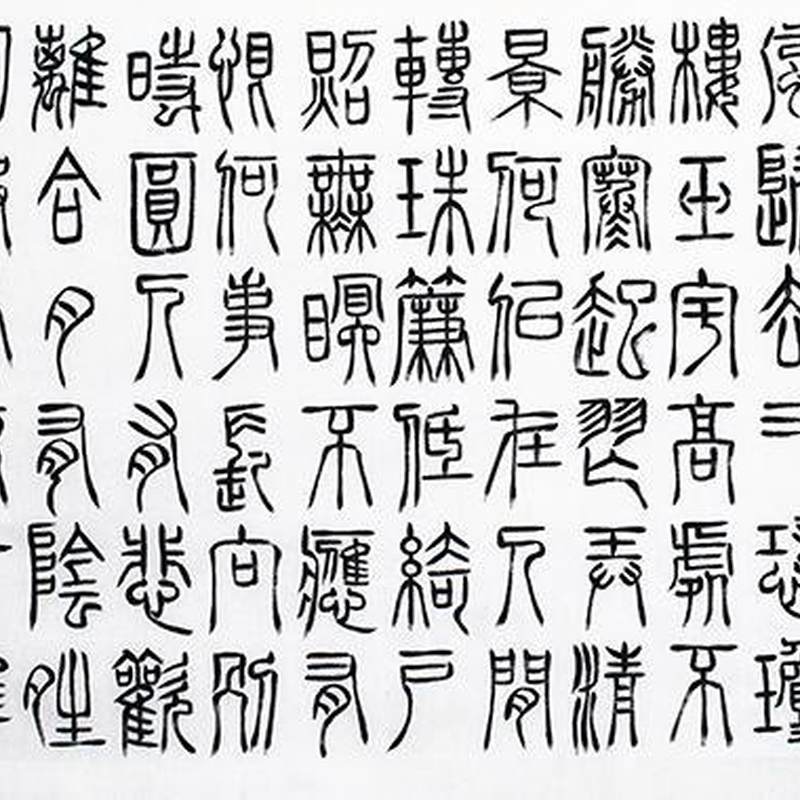 風歸去又恐瓊
樓玉宇高處不
勝寒起舞弄清
景何佀在人間
轉珠簾低綺戶
照無眠不應有
恨何事長向別
時圓人有悲歡
離合月有陰晴